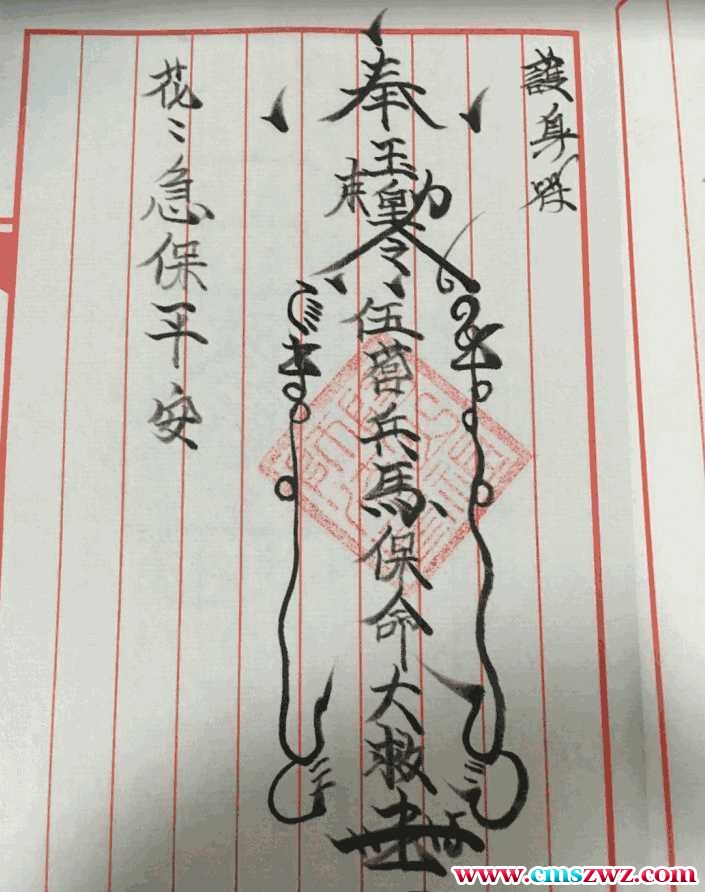 護身
奉玉皇勅令伍營兵馬保命大救
花〻急保平安
www.cmszwz.com